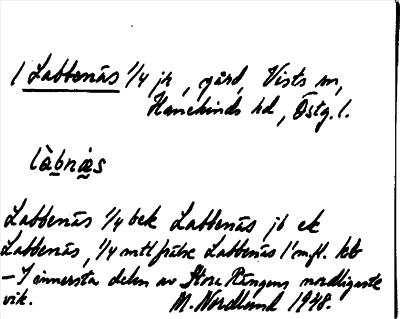 1 Labbenäs 1/4 jr, gård, Vists sn,
Hanekinds hd, Östg. l.
làbnä̀s
Labbenäs 1/4 bek Labbenäs jb ek
Labbenäs, 1/4 mtl frälse Labbenäs 1 mfl. kb
– I innersta delen av Stora Rängens nordligaste
vik. M. Nordlund 1948.